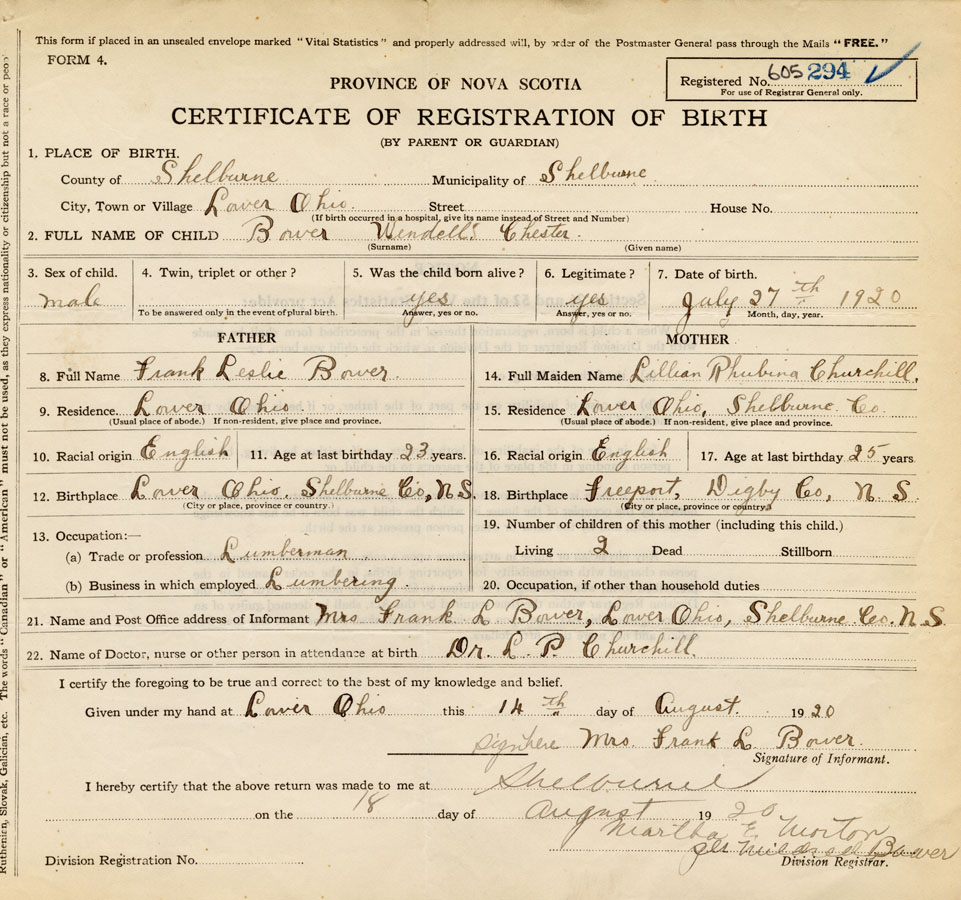 This form if placed in an unsealed envelope marked "Vital Statistics" and properly addressed will, by order of the Postmaster General pass through the Mails "FREE."
FORM 4.
Registered No. 605 294
For use of Registrar General only.
PROVINCE OF NOVA SCOTIA
CERTIFICATE OF REGISTRATION OF BIRTH
(BY PARENT OR GUARDIAN)
1. PLACE OF BIRTH.
County of Shelburne Municipality of Shelburne
City, Town or Village Lower Ohio. Street House No.
(If birth occurred in a hospital, give its name instead of Street and Number)
2. FULL NAME OF CHILD Bower Wendell Chester.
(Surname) (Given name)
3. Sex of child. 4. Twin, triplet or other? 5. Was the child born alive? 6. Legitimate? 7. Date of birth.
male yes yes July 27th 1920
To be answered only in the event of plural birth. Answer, yes or no. Answer, yes or no. Month, day, year.
FATHER MOTHER
8. Full Name Frank Leslie Bower. 14. Full Maiden Name Lillian Rhubina Churchill,
9. Residence. Lower Ohio. 15. Residence Lower Ohio, Shelburne Co.
(Usual place of abode.) If non-resident, give place and province. (Usual place of abode.) If non-resident, give place and province.
10. Racial origin English 11. Age at last birthday 23 years. 16. Racial origin English 17. Age at last birthday 25 years
12. Birthplace Lower Ohio, Shelburne Co, N.S. 18. Birthplace Freeport, Digby Co, N. S.
(City or place, province or country.) (City or place, province or country.)
13. Occupation:— 19. Number of children of this mother (including this child.)
(a) Trade or profession Lumberman Living 2 Dead Stillborn
(b) Business in which employed Lumbering. 20. Occupation, if other than household duties
21. Name and Post Office address of Informant Mrs Frank L Bower, Lower Ohio, Shelburne Co. N.S
22. Name of Doctor, nurse or other person in attendance at birth Dr. L. P. Churchill.
I certify the foregoing to be true and correct to the best of my knowledge and belief.
Given under my hand at Lower Ohio this 14th day of August. 1920
Sign here Mrs. Frank L. Bower.
Signature of Informant.
I hereby certify that the above return was made to me at Shelburne
on the 18 day of August 1920
Martha E Morton
per Mildred Bower
Division Registration No. Division Registrar.
Ruthenian, Slovak, Galician, etc. The words "Canadian" or "American" must not be used, as they express nationality or citizenship but not a race or